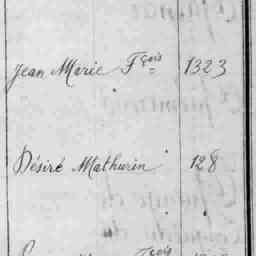 Jean Marie Fçois 1323
Désiré Mathurin 128